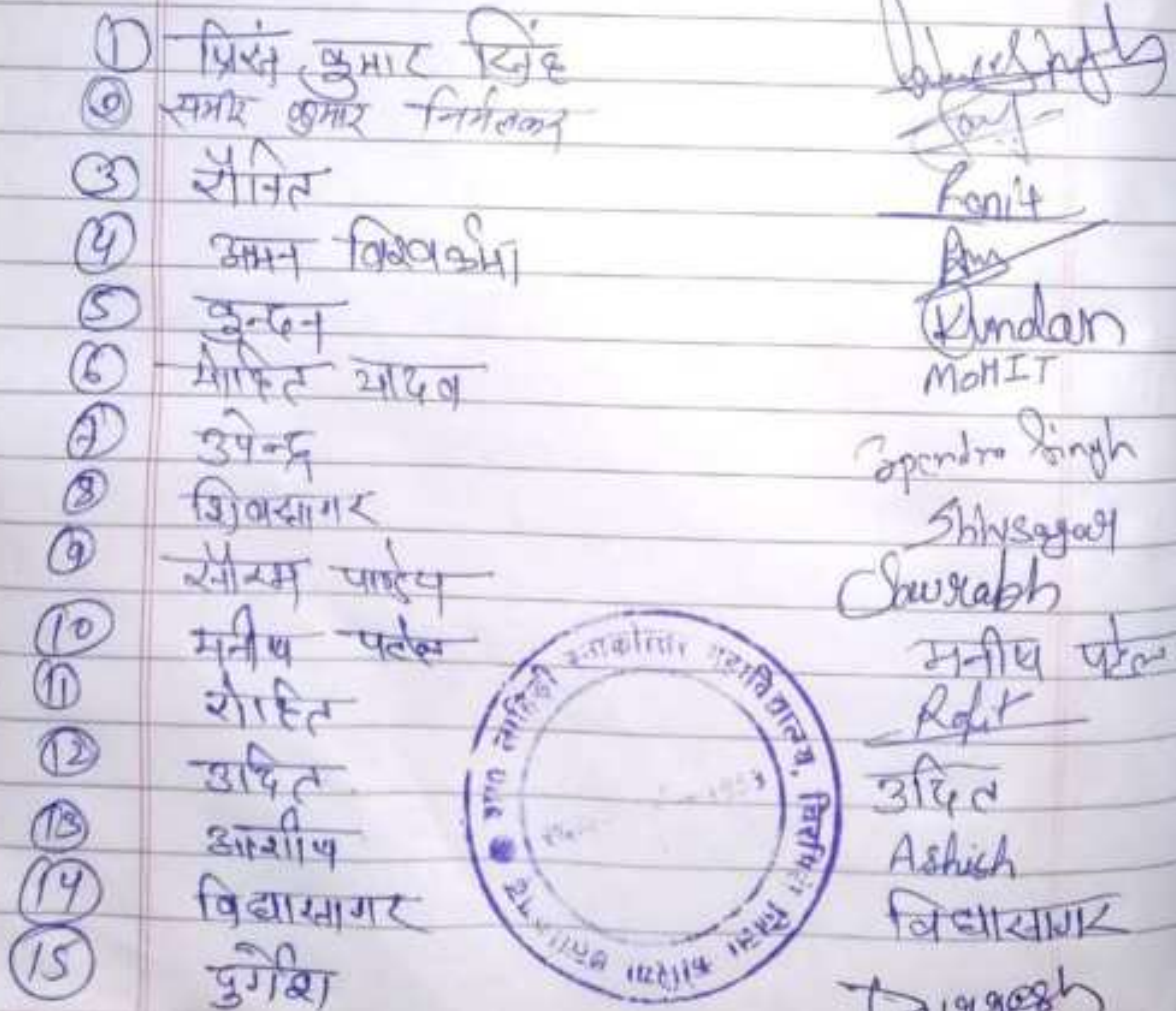 ① प्रिंस कुमार सिंह
② समीर कुमार निर्मलकर
③ रौनित Ronit
④ अमन विश्वकर्मा
⑤ कुन्दन Kundan
⑥ मोहित यादव MOHIT
⑦ उपेन्द्र Upendra Singh
⑧ शिवसागर Shivsagar
⑨ सौरभ पाण्डेय Saurabh
⑩ मनीष पटेल मनीष पटेल
⑪ रोहित Rohit
⑫ उदित उदित
⑬ आशीष Ashish
⑭ विद्यासागर विद्यासागर
⑮ दुर्गेश Durgesh
लाहिड़ी स्नातकोत्तर महाविद्यालय, चिरमिरी जिला कोरिया छत्तीसगढ़